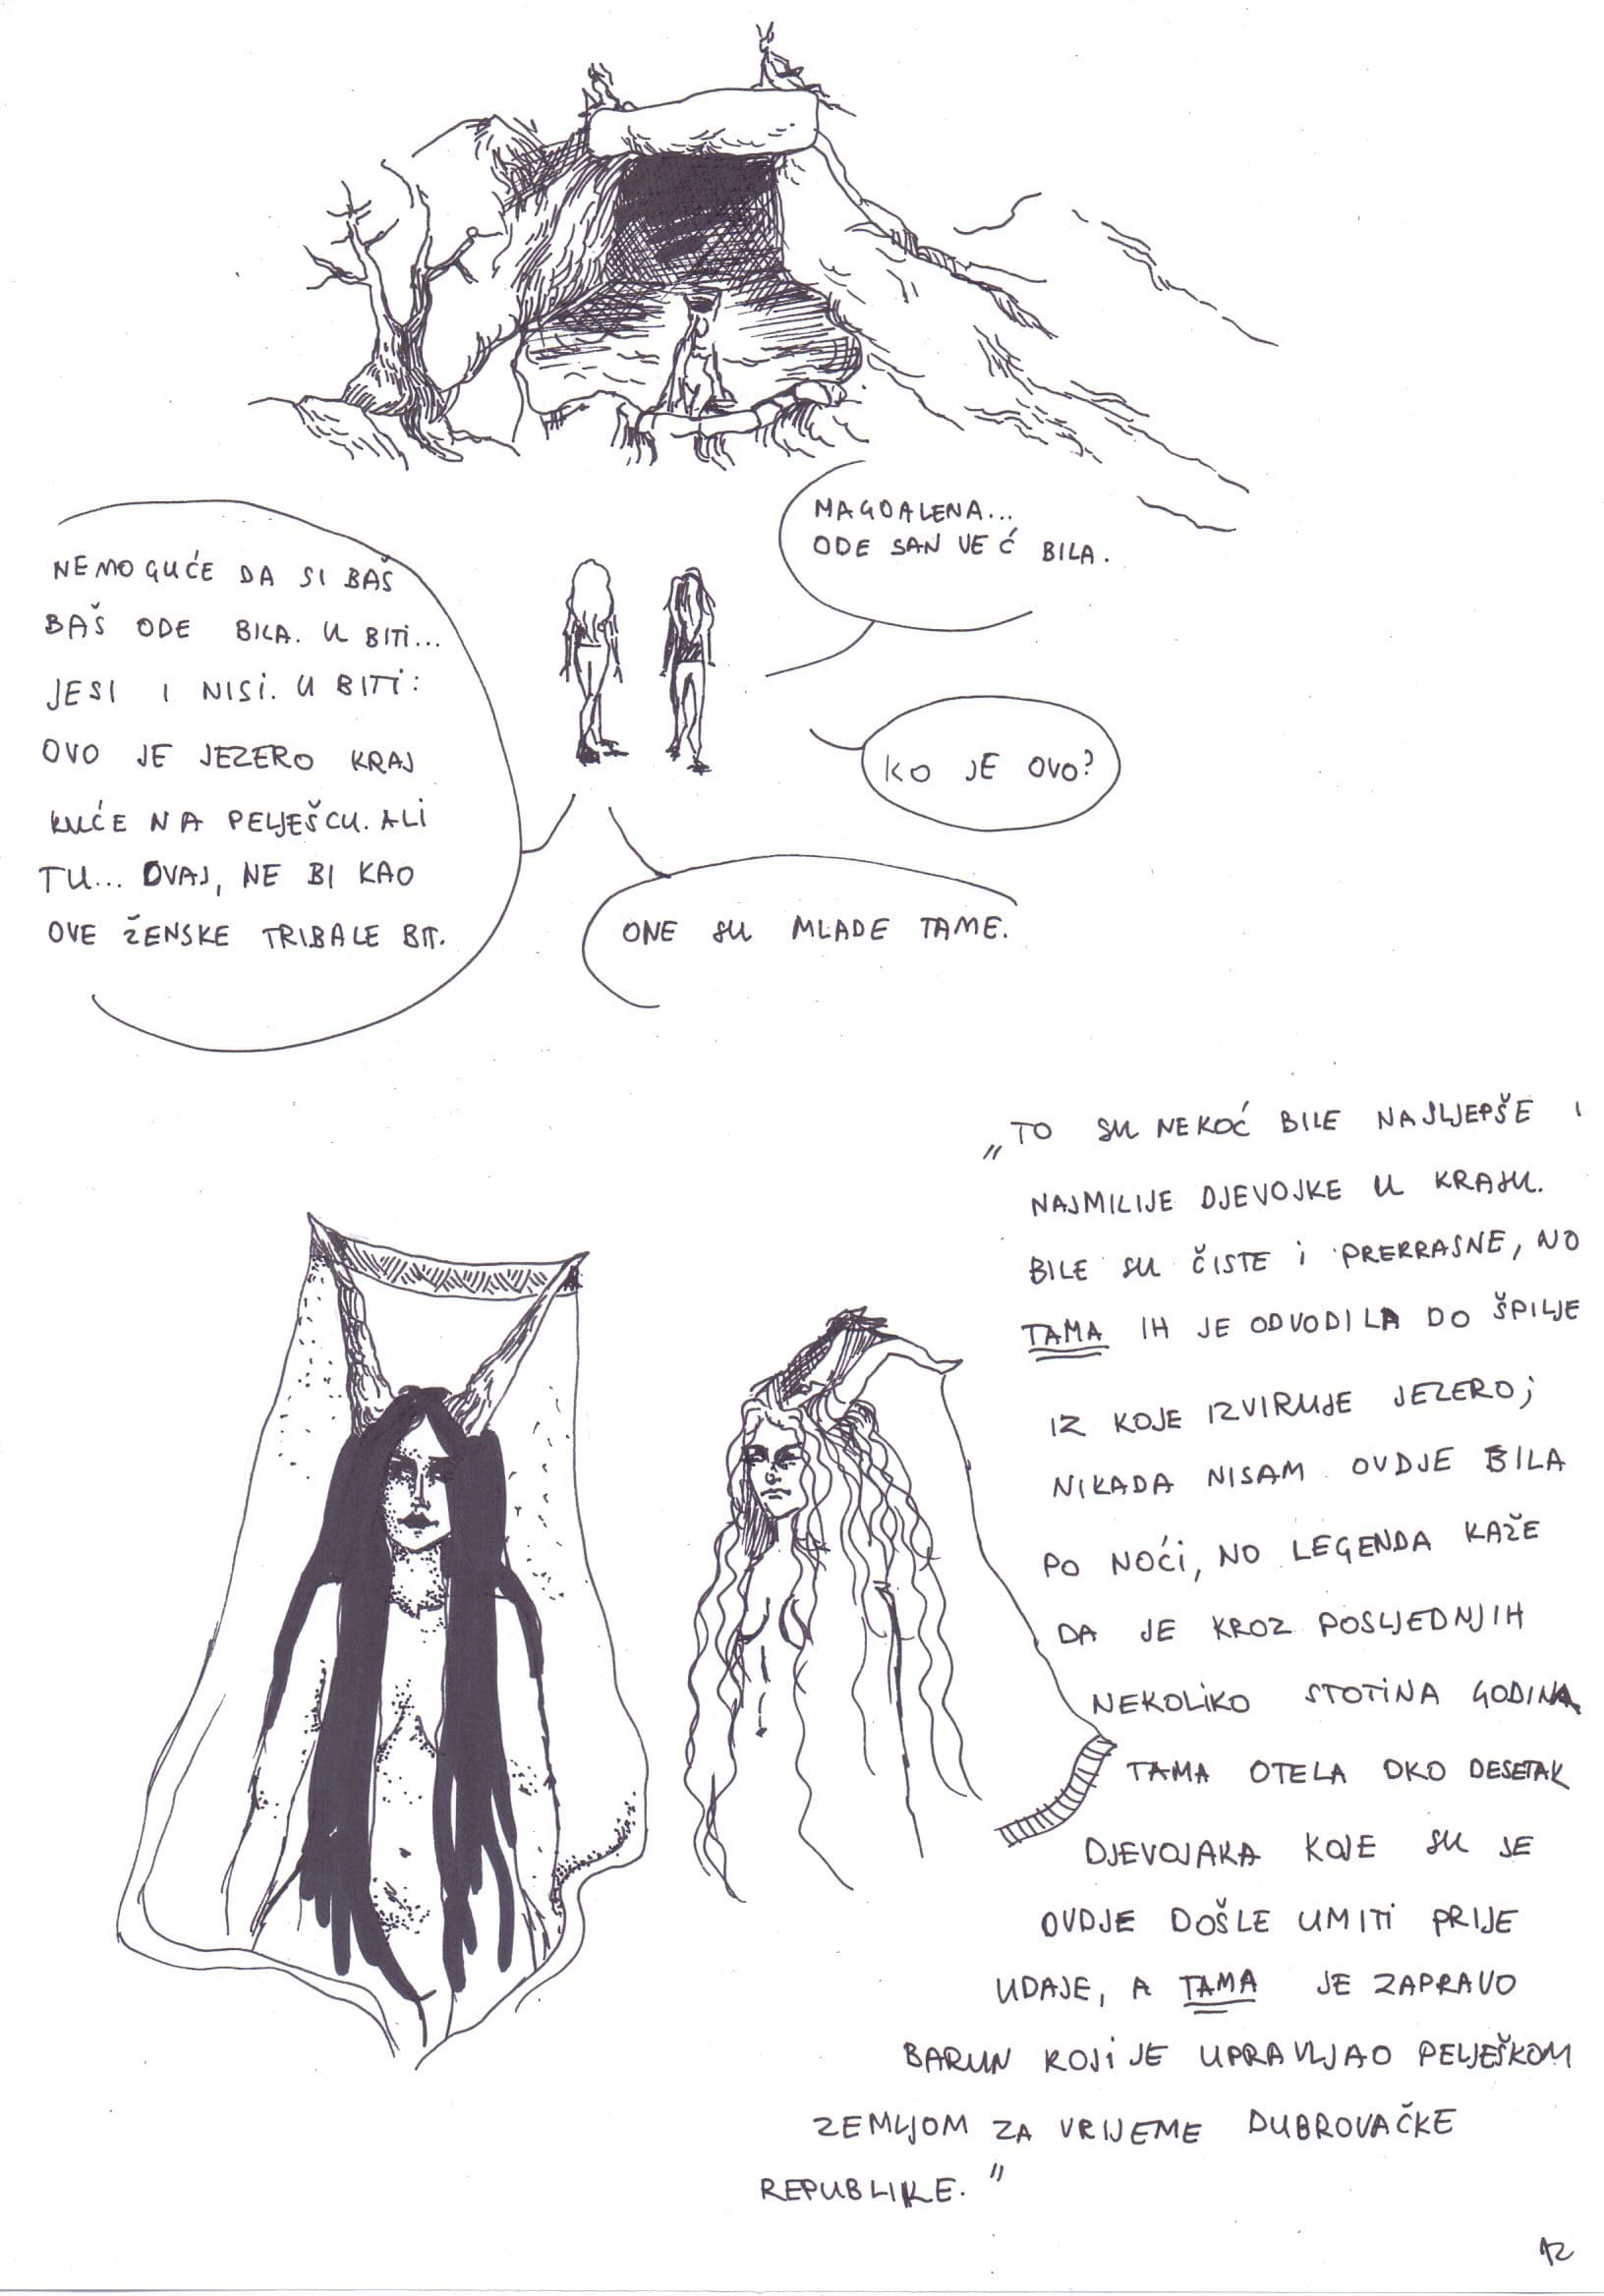 MAGDALENA...
ODE SAN VEĆ BILA.
NEMOGUĆE DA SI BAŠ
BAŠ ODE BILA. U BITI...
JESI I NISI. U BITI:
OVO JE JEZERO KRAJ
KUĆE NA PELJEŠCU. ALI
TU... OVAJ, NE BI KAO
OVE ŽENSKE TRIBALE BIT.
KO JE OVO?
ONE SU MLADE TAME.
„TO SU NEKOĆ BILE NAJLJEPŠE I
NAJMILIJE DJEVOJKE U KRAJU.
BILE SU ČISTE I PREKRASNE, NO
TAMA IH JE ODVODILA DO ŠPILJE
IZ KOJE IZVIRUJE JEZERO;
NIKADA NISAM OVDJE BILA
PO NOĆI, NO LEGENDA KAŽE
DA JE KROZ POSLJEDNJIH
NEKOLIKO STOTINA GODINA
TAMA OTELA OKO DESETAK
DJEVOJAKA KOJE SU SE
OVDJE DOŠLE UMITI PRIJE
UDAJE, A TAMA JE ZAPRAVO
BARUN KOJI JE UPRAVLJAO PELJEŠKOM
ZEMLJOM ZA VRIJEME DUBROVAČKE
REPUBLIKE."
12